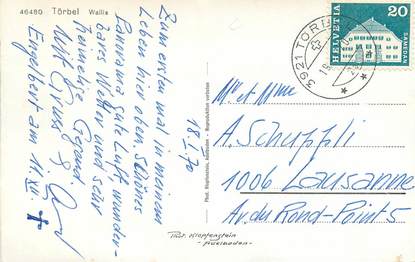 46480 Törbel Wallis
18.I.70
Zum ersten mal in meinem
Leben hier oben. Schönes
Panorama gute Luft wunder-
bares Wetter und sehr
Gerard
Mit Gruss
Engelbert am 11.XI. †
Phot. Klopfenstein, Adelboden - Reproduktion verboten
Phot. Klopfenstein
- Adelboden -
3921 TÖRBEL
HELVETIA 20
SAMEDAN
Mr et Mme
A. Schuppli
1006 Lausanne
Av. du Rond-Point 5